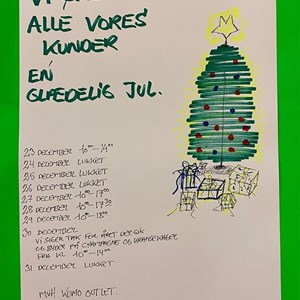 ALLE VORES
KUNDER
EN
GLÆDELIG JUL.
23 DECEMBER 10⁰⁰-14⁰⁰
24 DECEMBER LUKKET
25 DECEMBER LUKKET
26 DECEMBER LUKKET
27 DECEMBER 10⁰⁰-17⁰⁰
28 DECEMBER 10⁰⁰-17³⁰
29 DECEMBER 10⁰⁰-18⁰⁰
30 DECEMBER
VI SIGER TAK FOR ÅRET DER GIK
OG BYDER PÅ CHAMPAGNE OG KRANSEKAGE
FRA KL 10⁰⁰-14⁰⁰
31 DECEMBER LUKKET
MVH OUTLET.